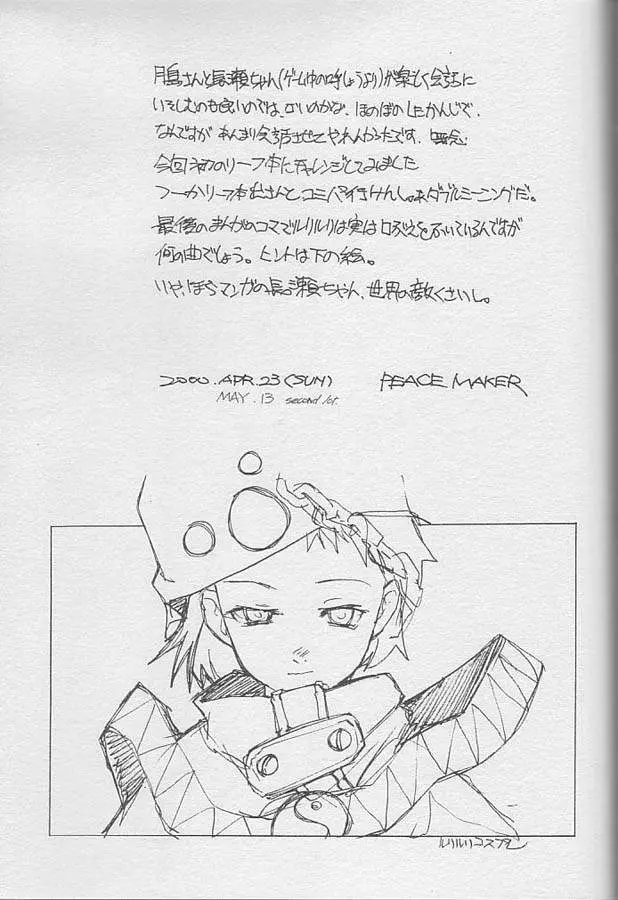 月島さんと長瀬ちゃん(ゲーム中の呼しょうより)が楽しく会話に
いそしむのも良いのでは、ないのかな、ほのぼのしたかんじで、
なんですが あんまり会話させてやれんかったです。無念
今回初のリーフ本にチャレンジしてみました
つーかリーフ本
ダブルミーニングだ。
最後のまんがのコマでルリルリは実は口ぶえをふいているんですが
何の曲でしょう。ヒントは下の絵。
いや、ほらマンガの長瀬ちゃん、世界の敵くさいし。
2000.APR.23(SUN) PEACE MAKER
MAY.13 second lot.
ルリルリコスプレ